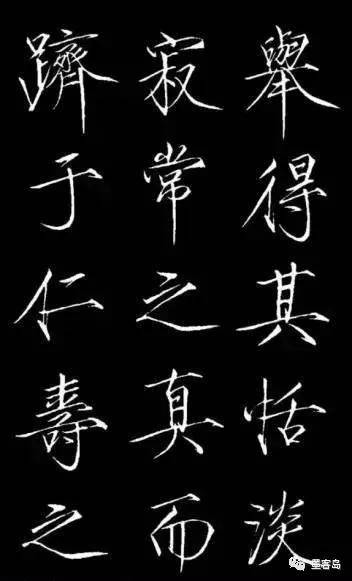 舉得其恬淡
寂常之真而
躋于仁壽之
墨客岛